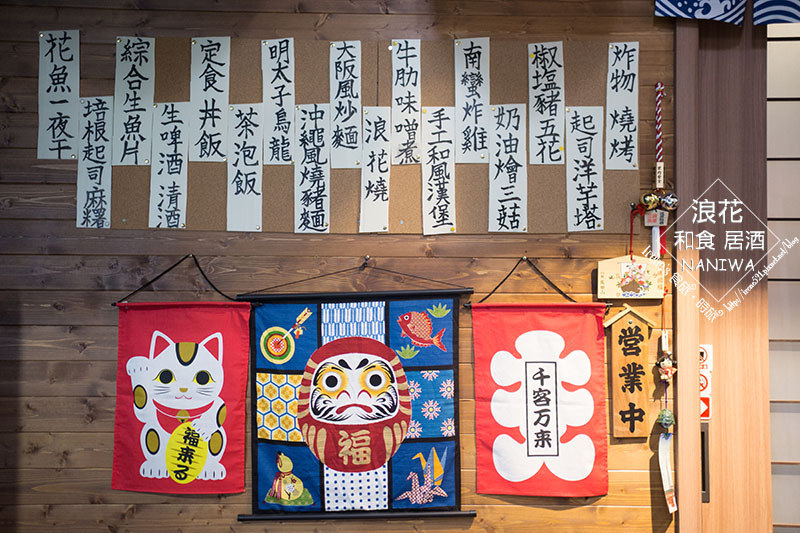 炸物 燒烤
起司洋芋塔
椒塩豬五花
奶油燴三菇
南蠻炸雞
手工和風漢堡
牛肋味噌煮
浪花燒
大阪風炒麵
沖繩風燒豬麵
明太子烏龍
茶泡飯
定食 丼飯
生啤酒 清酒
綜合生魚片
培根起司麻糬
花魚一夜干
福来る
福
千客万来
営業中
浪花
和食 居酒
NANIWA